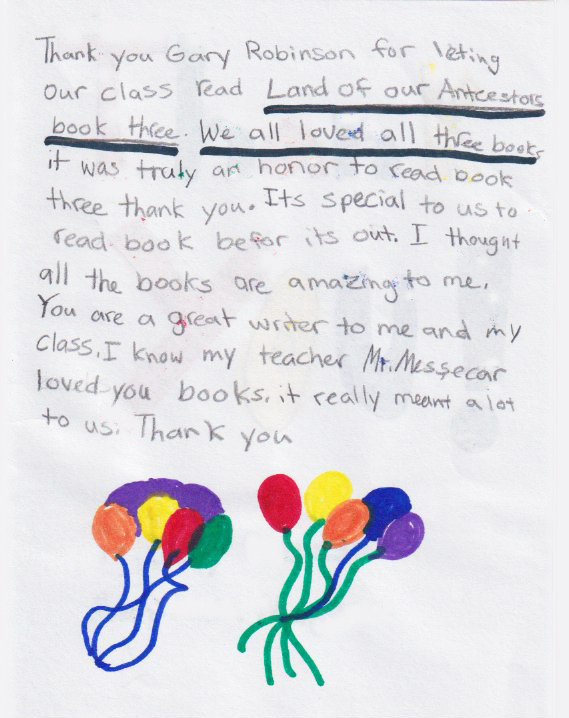 Thank you Gary Robinson for leting
our class read Land of our Antcestors
book three. We all loved all three books
it was truly an honor to read book
three thank you. Its special to us to
read book befor its out. I thought
all the books are amazing to me.
You are a great writer to me and my
class. I know my teacher Mr. Messecar
loved you books. it really meant a lot
to us. Thank you